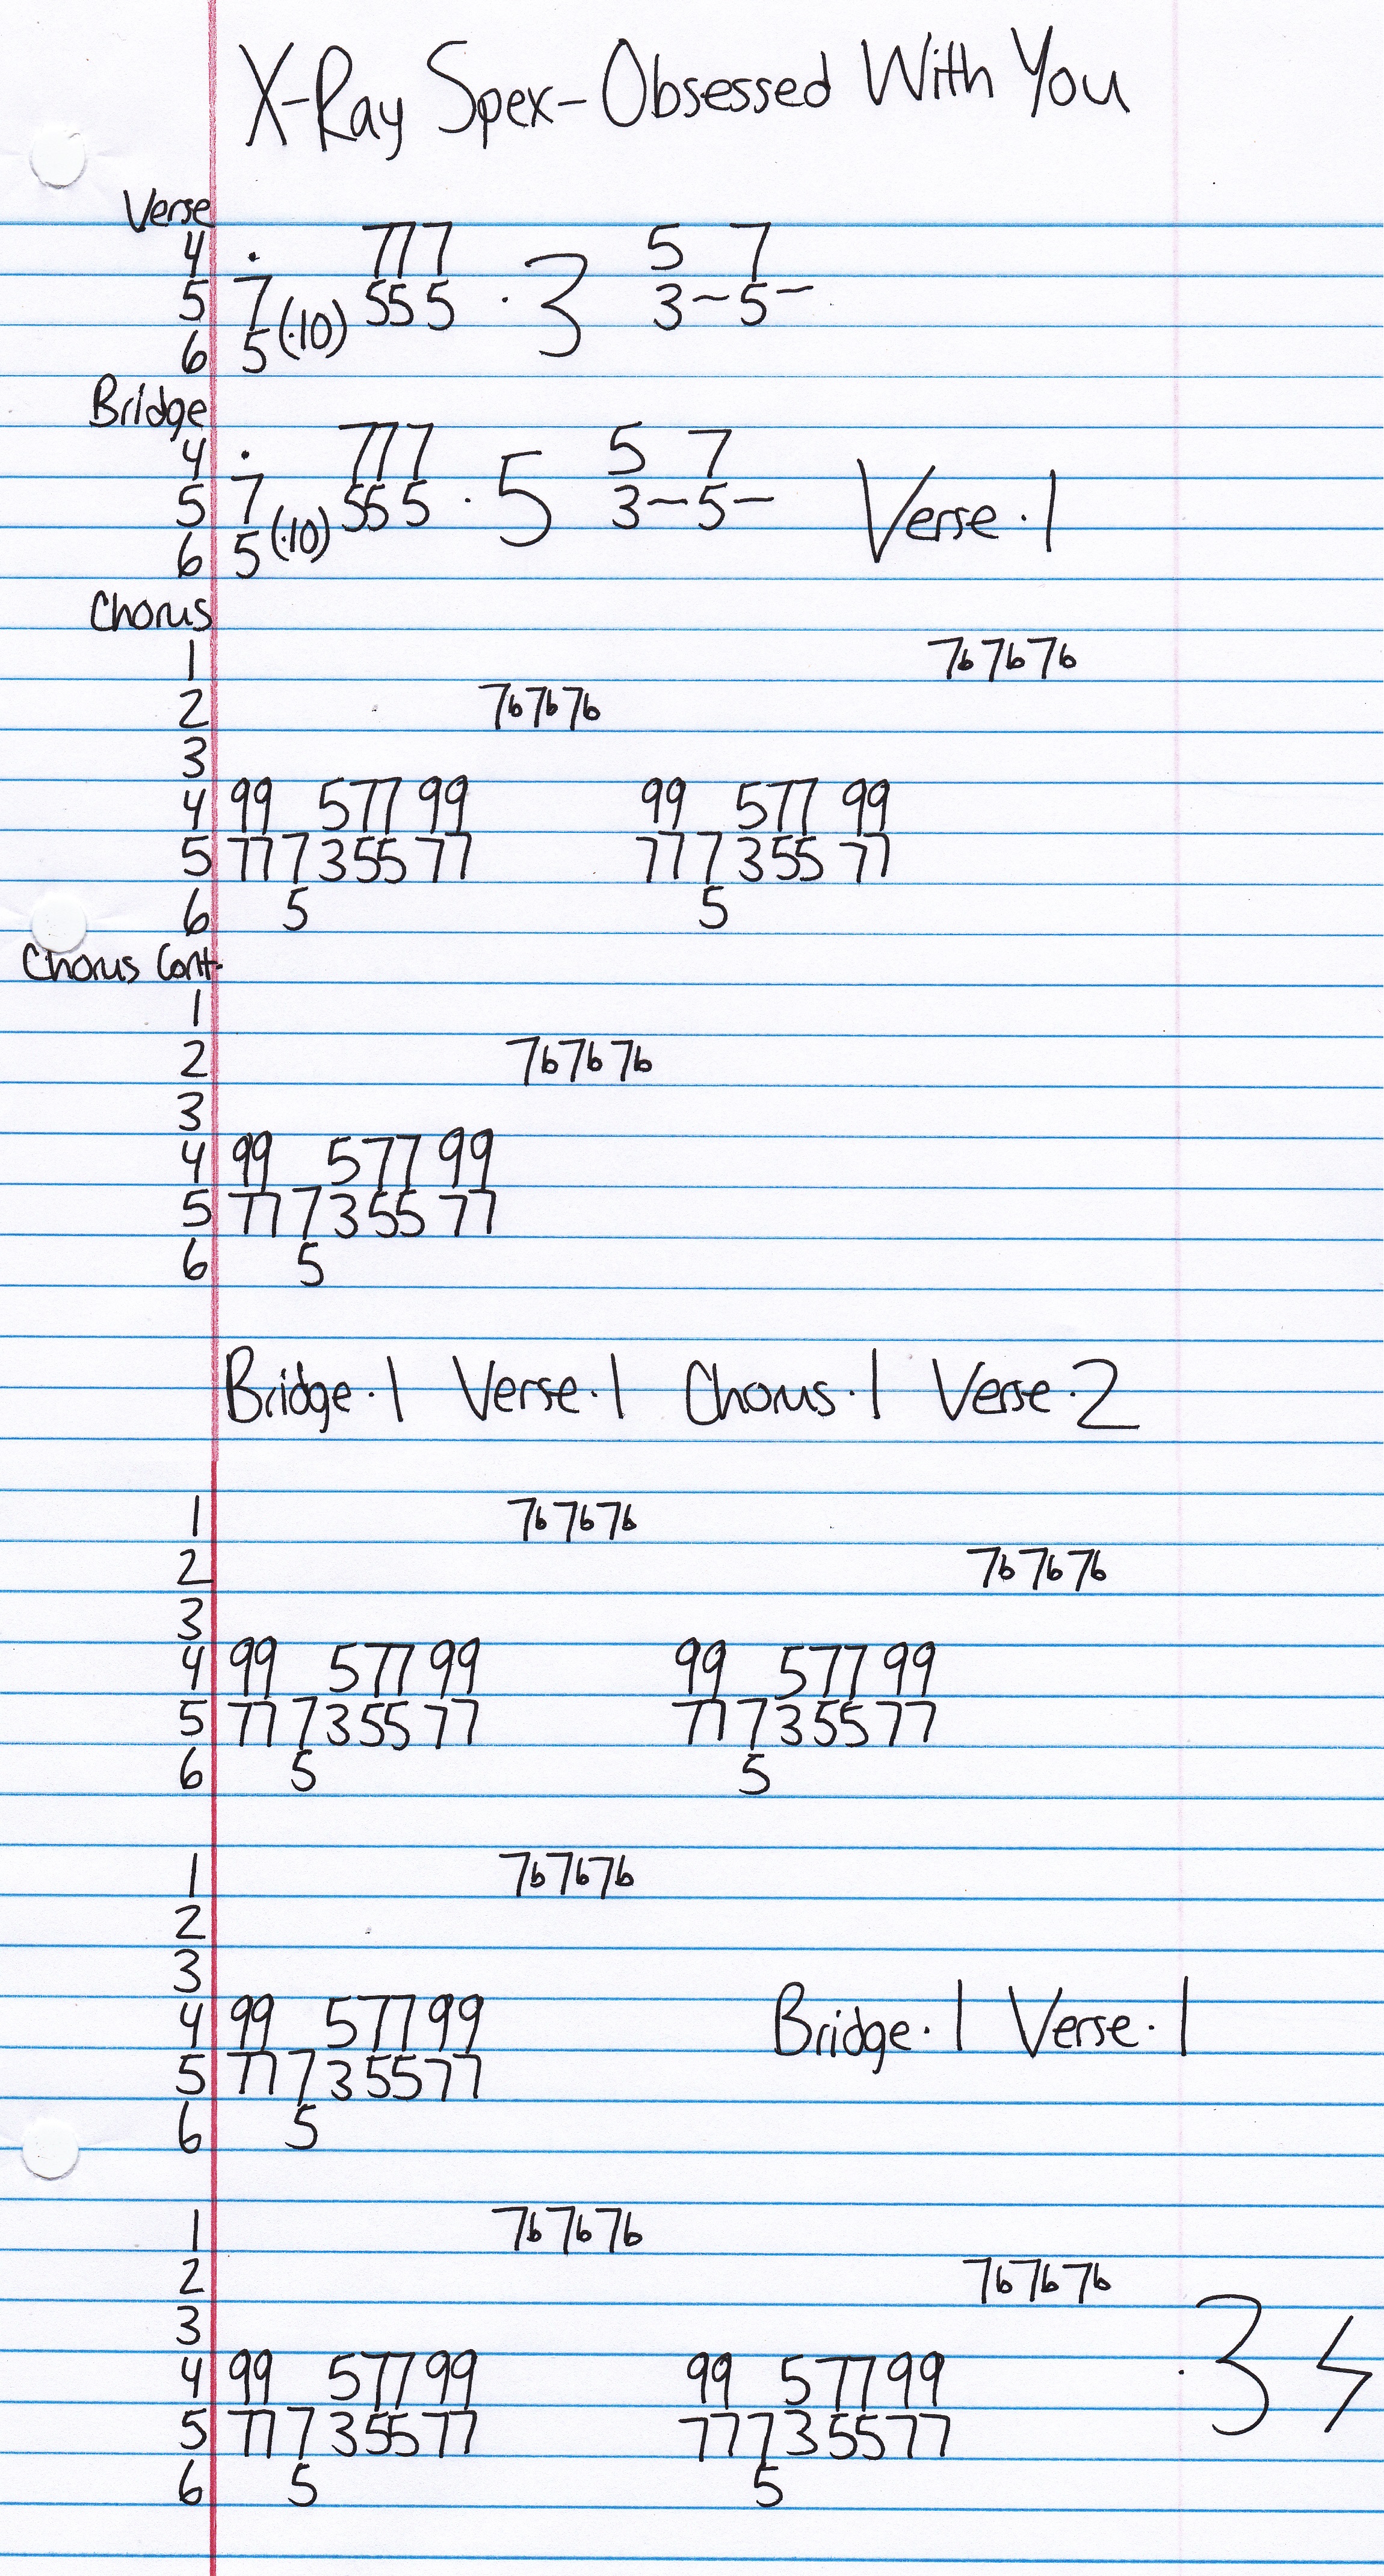 X-Ray Spex-Obsessed With You
Verse
4 . 777 5 7
5 7 (.10) 555 . 3 3~5~
6 5
Bridge
4 . 777 5 7
5 7 (.10) 555 . 5 3~5~ Verse.1
6 5
Chorus
1 7b7b7b
2 7b7b7b
3
4 99 577 99 99 577 99
5 77 7355 77 77 7355 77
6 5 5
Chorus Cont.
1
2 7b7b7b
3
4 99 577 99
5 77 7355 77
6 5
Bridge.1 Verse.1 Chorus.1 Verse.2
1 7b7b7b
2 7b7b7b
3
4 99 577 99 99 577 99
5 77 7355 77 77 7355 77
6 5 5
1 7b7b7b
2
3
4 99 577 99 Bridge.1 Verse.1
5 77 7355 77
6 5
1 7b7b7b
2 7b7b7b
3
4 99 577 99 99 577 99 .3
5 77 7355 77 77 7355 77
6 5 5